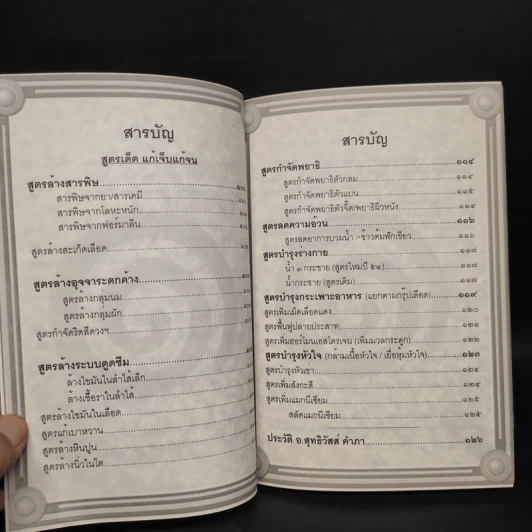 สารบัญ
สูตรเด็ด แก้เจ็บแก้จน
สูตรล้างสารพิษ
สารพิษจากยา/สารเคมี
สารพิษจากโลหะหนัก
สารพิษจากฟอร์มาลีน
สูตรล้างสะเก็ดเลือด
สูตรล้างอุจจาระตกค้าง
สูตรล้างกลุ่มนม
สูตรล้างกลุ่มผัก
สูตรกำจัดริดสีดวงฯ
สูตรล้างระบบดูดซึม
ล้างไขมันในลำไส้เล็ก
ล้างเชื้อราในลำไส้
สูตรล้างไขมันในเลือด
สูตรแก้เบาหวาน
สูตรล้างหินปูน
สูตรล้างนิ่วในไต
สารบัญ
สูตรกำจัดพยาธิ ๑๑๔
สูตรกำจัดพยาธิตัวกลม ๑๑๔
สูตรกำจัดพยาธิตัวแบน ๑๑๕
สูตรกำจัดพยาธิตัวจี๊ด/พยาธิผิวหนัง ๑๑๕
สูตรลดความอ้วน ๑๑๖
สูตรลดอาการบวมน้ำ->ข้าวต้มฟักเขียว ๑๑๖
สูตรบำรุงร่างกาย ๑๑๗
น้ำ ๓ กระชาย (สูตรใหม่ปี ๕๔) ๑๑๗
น้ำกระชาย (สูตรเดิม) ๑๑๘
สูตรบำรุงกระเพาะอาหาร (แยกตามกรุ๊ปเลือด) ๑๑๙
สูตรเพิ่มเม็ดเลือดแดง ๑๒๐
สูตรฟื้นฟูปลายประสาท ๑๒๑
สูตรเพิ่มฮอร์โมนเอสโตรเจน (เพิ่มมวลกระดูก) ๑๒๒
สูตรบำรุงหัวใจ (กล้ามเนื้อหัวใจ / เยื่อหุ้มหัวใจ) ๑๒๓
สูตรบำรุงหัวเข่า ๑๒๔
สูตรเพิ่มสังกะสี ๑๒๔
สูตรเพิ่มแมกนีเซียม ๑๒๕
สลัดแมกนีเซียม ๑๒๕
ประวัติ อ.สุทธิวัสส์ คำภา ๑๒๖